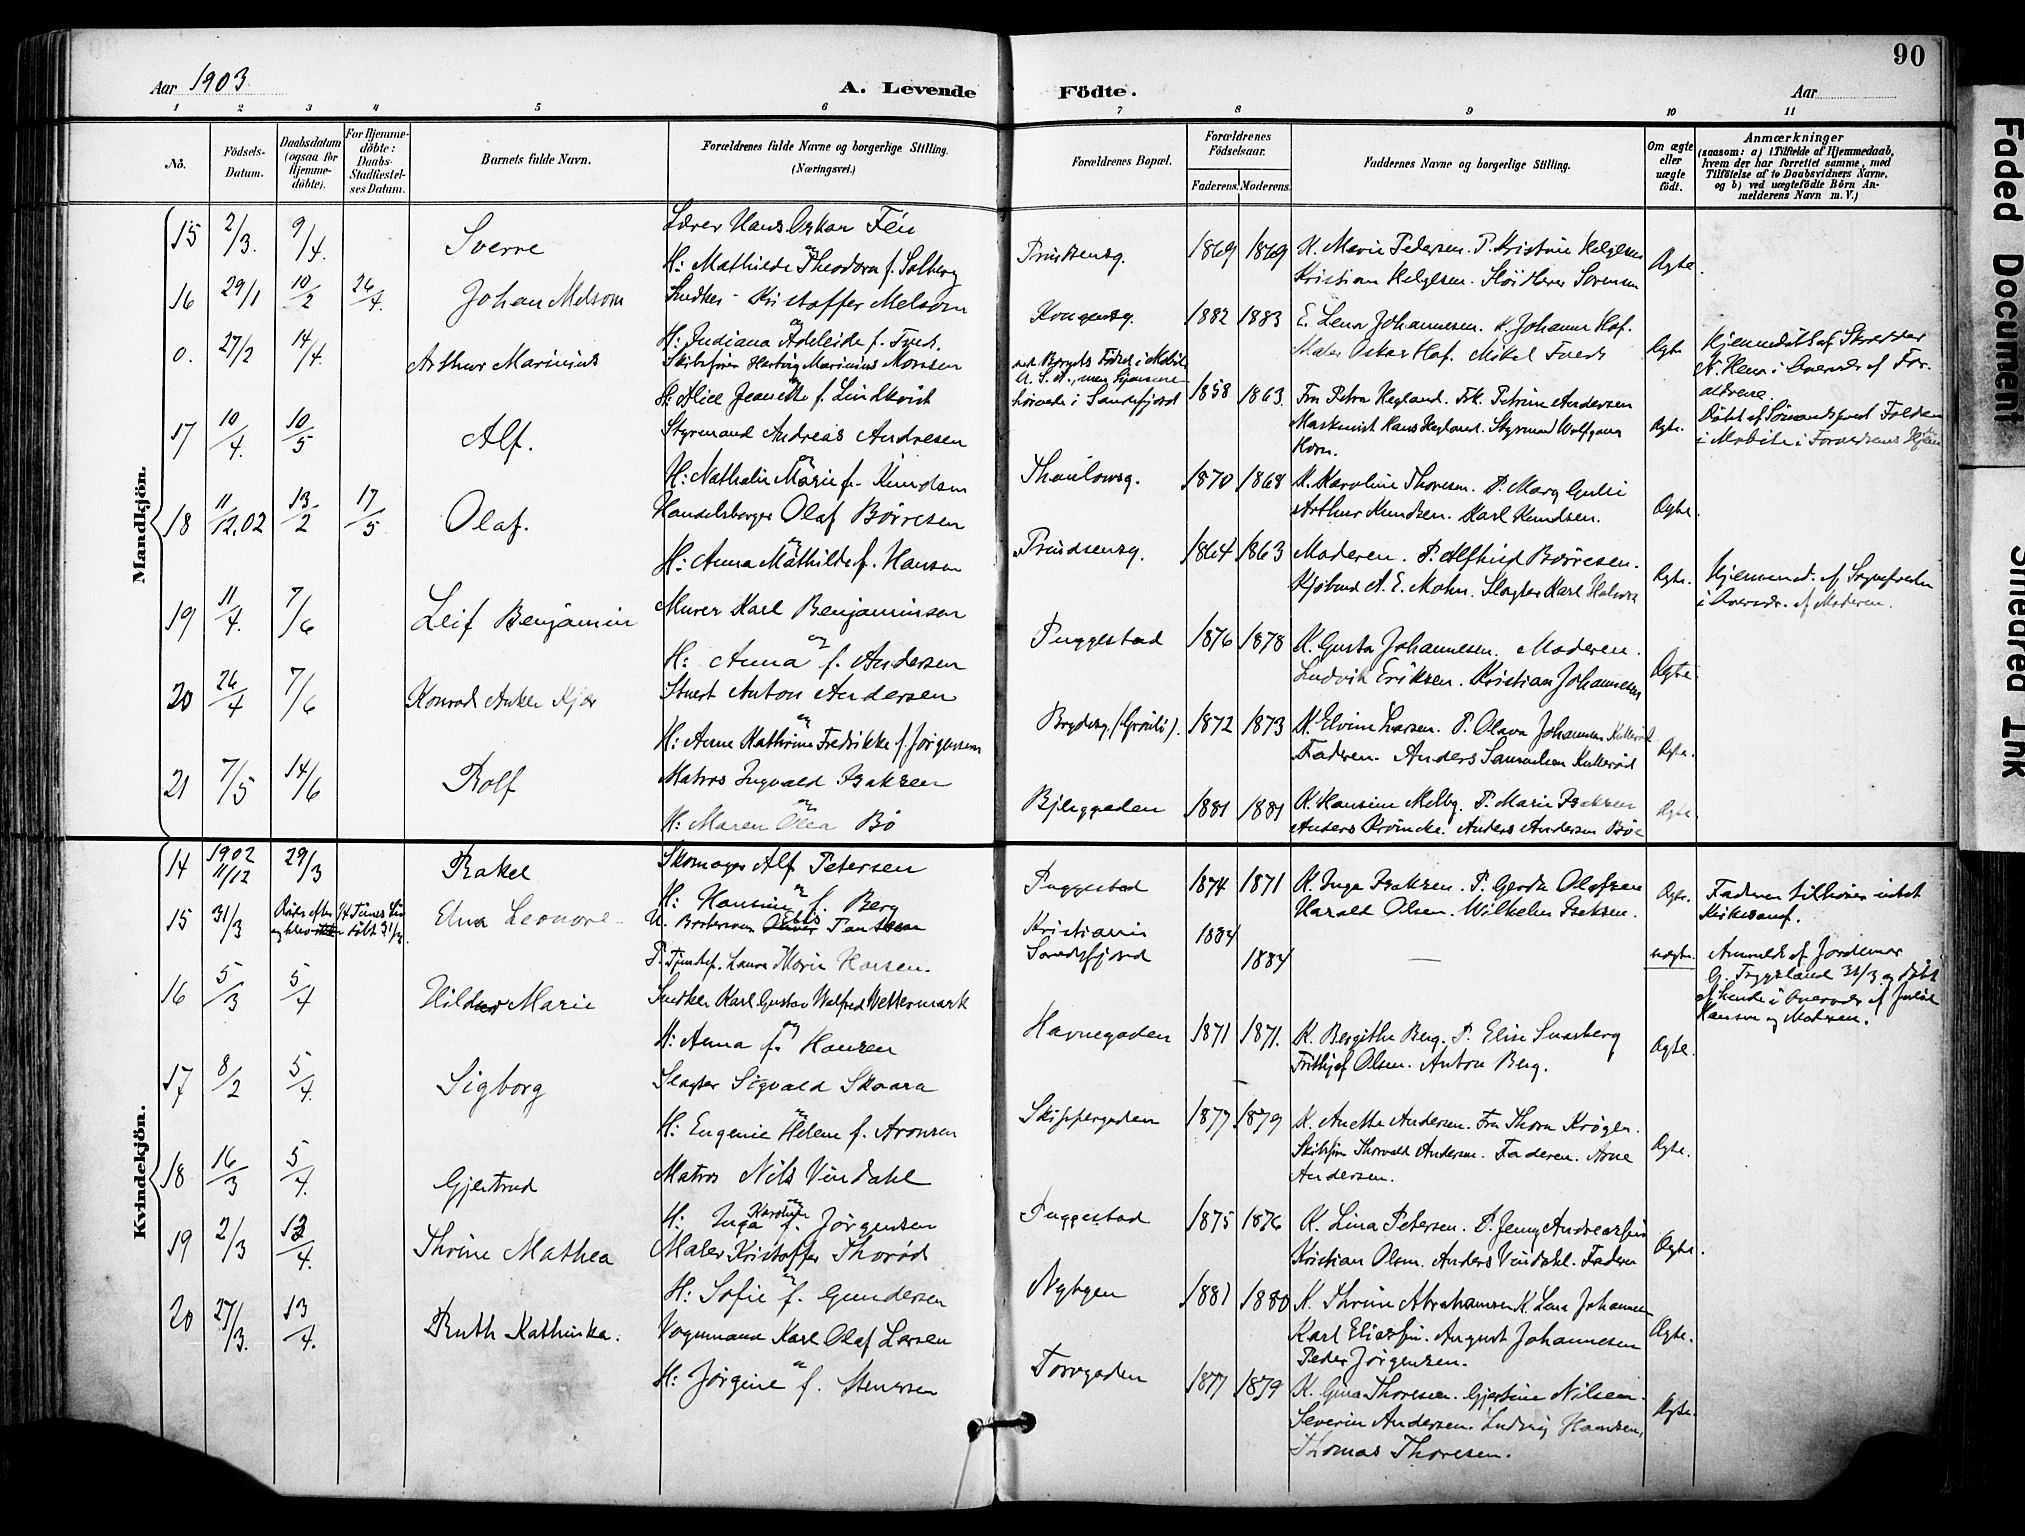 90
Aar 1903
A. Levende Födte.
Aar
1 2 3 4 5 6 7 8 9 10 11
No.
Födsels-
Datum.
Daabsdatum
(ogsaa för
Hjemme-
döbte).
For Hjemme-
döbte:
Daabs-
Stadfæstel-
ses Datum.
Barnets fulde Navn.
Forældrenes fulde Navne og borgerlige Stilling.
(Næringsvei.)
Forældrenes Bopæl.
Forældrenes
Födselsaar.
Faderens. Moderens.
Faddernes Navne og borgerlige Stilling.
Om ægte
eller
uægte
födt.
Anmærkninger
(saasom: a) i Tilfælde af Hjemmedaab,
hvem der har forrettet samme, med
Tilföielse af to Daabsvidners Navne,
og b) ved uægtefödte Börn An-
melderens Navn m. V.)
Mandkjön.
15 2/3. 9/4. Sverre
Lærer Hans Oskar
og
H: Mathilde Theodora f. Solberg
Prindsensg. 1869 1869
K. Marie Pedersen. P. Kristine Helgesen
Kristian Helgesen. Sørensen
Ægte.
16 29/1 10/2 26/4. Johan Melsom
Snedker Kristoffer Melsom
og
H: Indiana Adeleide f. Tved.
Kongensg. 1882 1883
E. Lena Johannesen. K. Johanne Hof.
Maler Oskar Hof. Mikal Tveds
Ægte
Hjemmedöbt af
i Overvær af For-
ældrene.
0. 27/2 14/4. Arthur Marinius
Skibsfører Hartvig Marinius Monsen
og
H: Alice Jeanette f. Lindkvist
i Sandefjord 1858 1863.
Fru Petra Hegland. Frk. Petrine Andersen
Maskinist Hans Hegland. Styrmand Wolfgang
Horn.
Ægte.
Døbt af Sömandsprest
i Mobile i Forældrenes Hjem
17 10/4. 10/5 Alf.
Styrmand Andreas Andresen
og
H: Nathalie Marie f. Knudsen
Thaulowsg. 1870 1868
K. Karoline Thoresen. P. Marg
Arthur Knudsen. Karl Knudsen.
Ægte.
18 11/12.02 13/2 17/5 Olaf.
Handelsborger Olaf Børresen
og
H: Anna Mathilde f. Hansen
Prindsensg. 1864 1863
Moderen. P. Børresen.
Kjøbmd A. E. Mohn. Slagter Karl Halvorsen
Ægte.
Hjemmed. af Sogneprest
i Overvær. af Moderen.
19 11/4. 7/6 Leif Benjamin
Murer Karl Benjaminsen
og
H: Anna f. Andersen
Puggestad 1876 1878
K. Gusta Johannesen. Moderen.
Ludvik Eriksen. Kristian Johannesen
Ægte.
20 26/4 7/6 Konrad Anker Kjær
Stuert Anton Andersen
og
H: Anne Kathrine Fredrikke f. Jørgensen
Brydesg. (Grönli). 1872 1873
K. Elvine Larsen. P. Olava Johannesen Kullerød
Faderen. Anders Samuelsen Kullerød
Ægte.
21 7/5 14/6 Rolf
Matros Ingvald Isaksen
og
H: Maren Olea Bø
Bjerggaden 1881 1881
K. Hansine Melby. P. Marie Isaksen
Anders Krömcke. Anders Andersen Böe
Ægte.
Kvindekjön.
14 1902 11/12 29/3 Rakel
Skomager Alf Petersen
og
H: Hansine f. Berg
Puggestad 1874 1871
K. Inga Isaksen. P. Gerda Olafsen
Harald Olsen. Wilhelm Isaksen.
Ægte.
Faderen tilhörer intet
Kirkesamf.
15 31/3 Elna Leonore
P. Tjenestef. Laura Marie Hansen.
Kristiania 1884
Sandefjord 1884
—
uægte.
Anmeldt af Jordemor
G. Tryggland 31/3 og döbt
af hende i Overvær af
Hansen og Moderen.
16 5/3 5/4 Hildur Marie
Snedker Karl Gustav Walfred Wettermark
og
H: Anna f. Hansen
Havnegaden 1871 1871.
K. Bergithe Berg. P. Elise Snarberg
Frithjof Olsen. Anton Berg.
Ægte.
17 8/2 5/4. Sigborg
Slagter Sigvald Skaara
og
H: Eugenie Helene f. Aronsen
Skippergaden 1877 1879
K. Anette Andersen. Fru Thora Krøger.
Skibsfører Thorvald Andersen. Faderen. Arne
Andersen.
Ægte.
18 16/3 5/4. Gjertrud
Matros Nils Vindahl
og
H: Inga Karoline f. Jørgensen
Puggestad 1875 1876
K. Lina Petersen. P. Jenny Andreassen
Kristian Olsen. Anders Vindahl. Faderen
Ægte.
19 2/3 13/4. Thrine Mathea
Maler Kristoffer Thorød
og
H: Sofie f. Gundersen
Nybyen 1881 1880
K. Thrine Abrahamsen K. Lena Johannesen
Karl Eliassen. August Johannesen
Peder Jørgensen.
Ægte.
20 27/3. 13/4. Ruth Kathinka.
Vognmand Karl Olaf Larsen
og
H: Jørgine f. Stensen
Torvgaden 1877 1879
K. Gina Thoresen. Gjertine Nilsen.
Severin Andersen. Ludvig Hansen.
Thomas Thoresen.
Ægte.
Faded Document
Smeared Ink